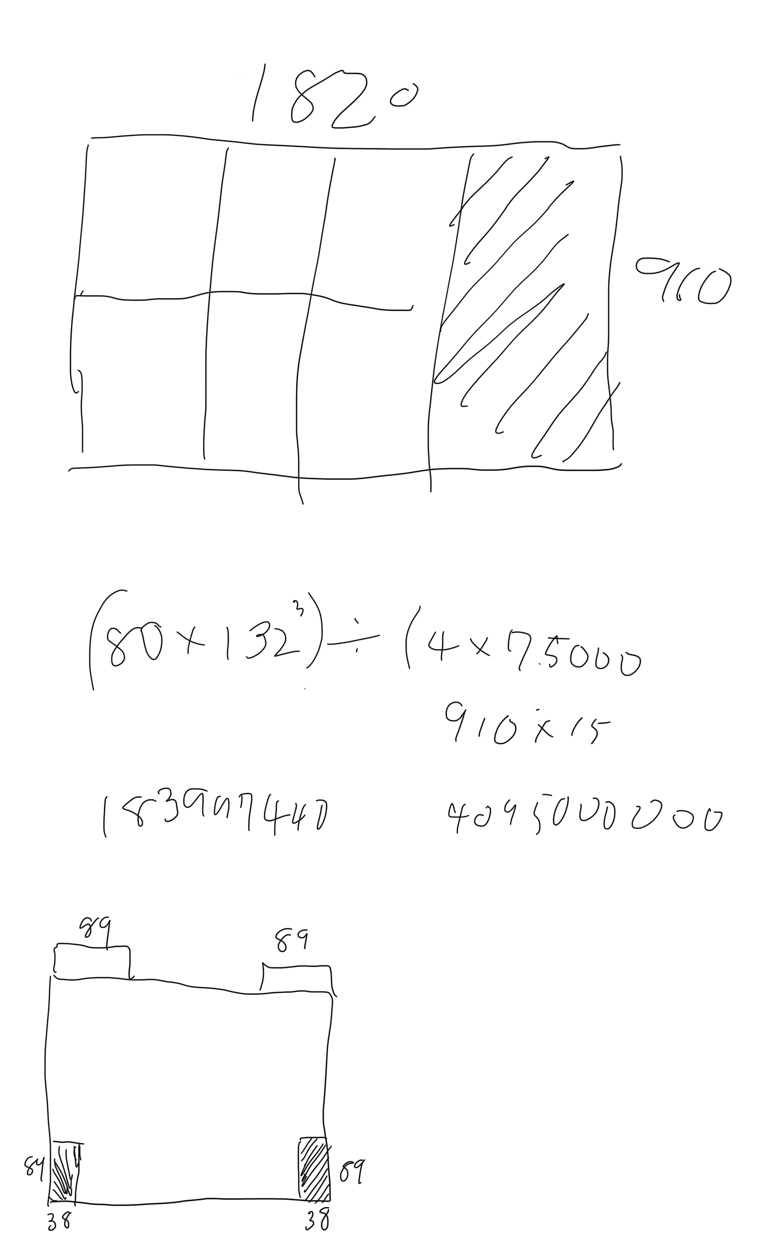 1820
910
(80×132³)÷(4×7.5000
910×15
183997440
4095000000
89
89
89
89
38
38